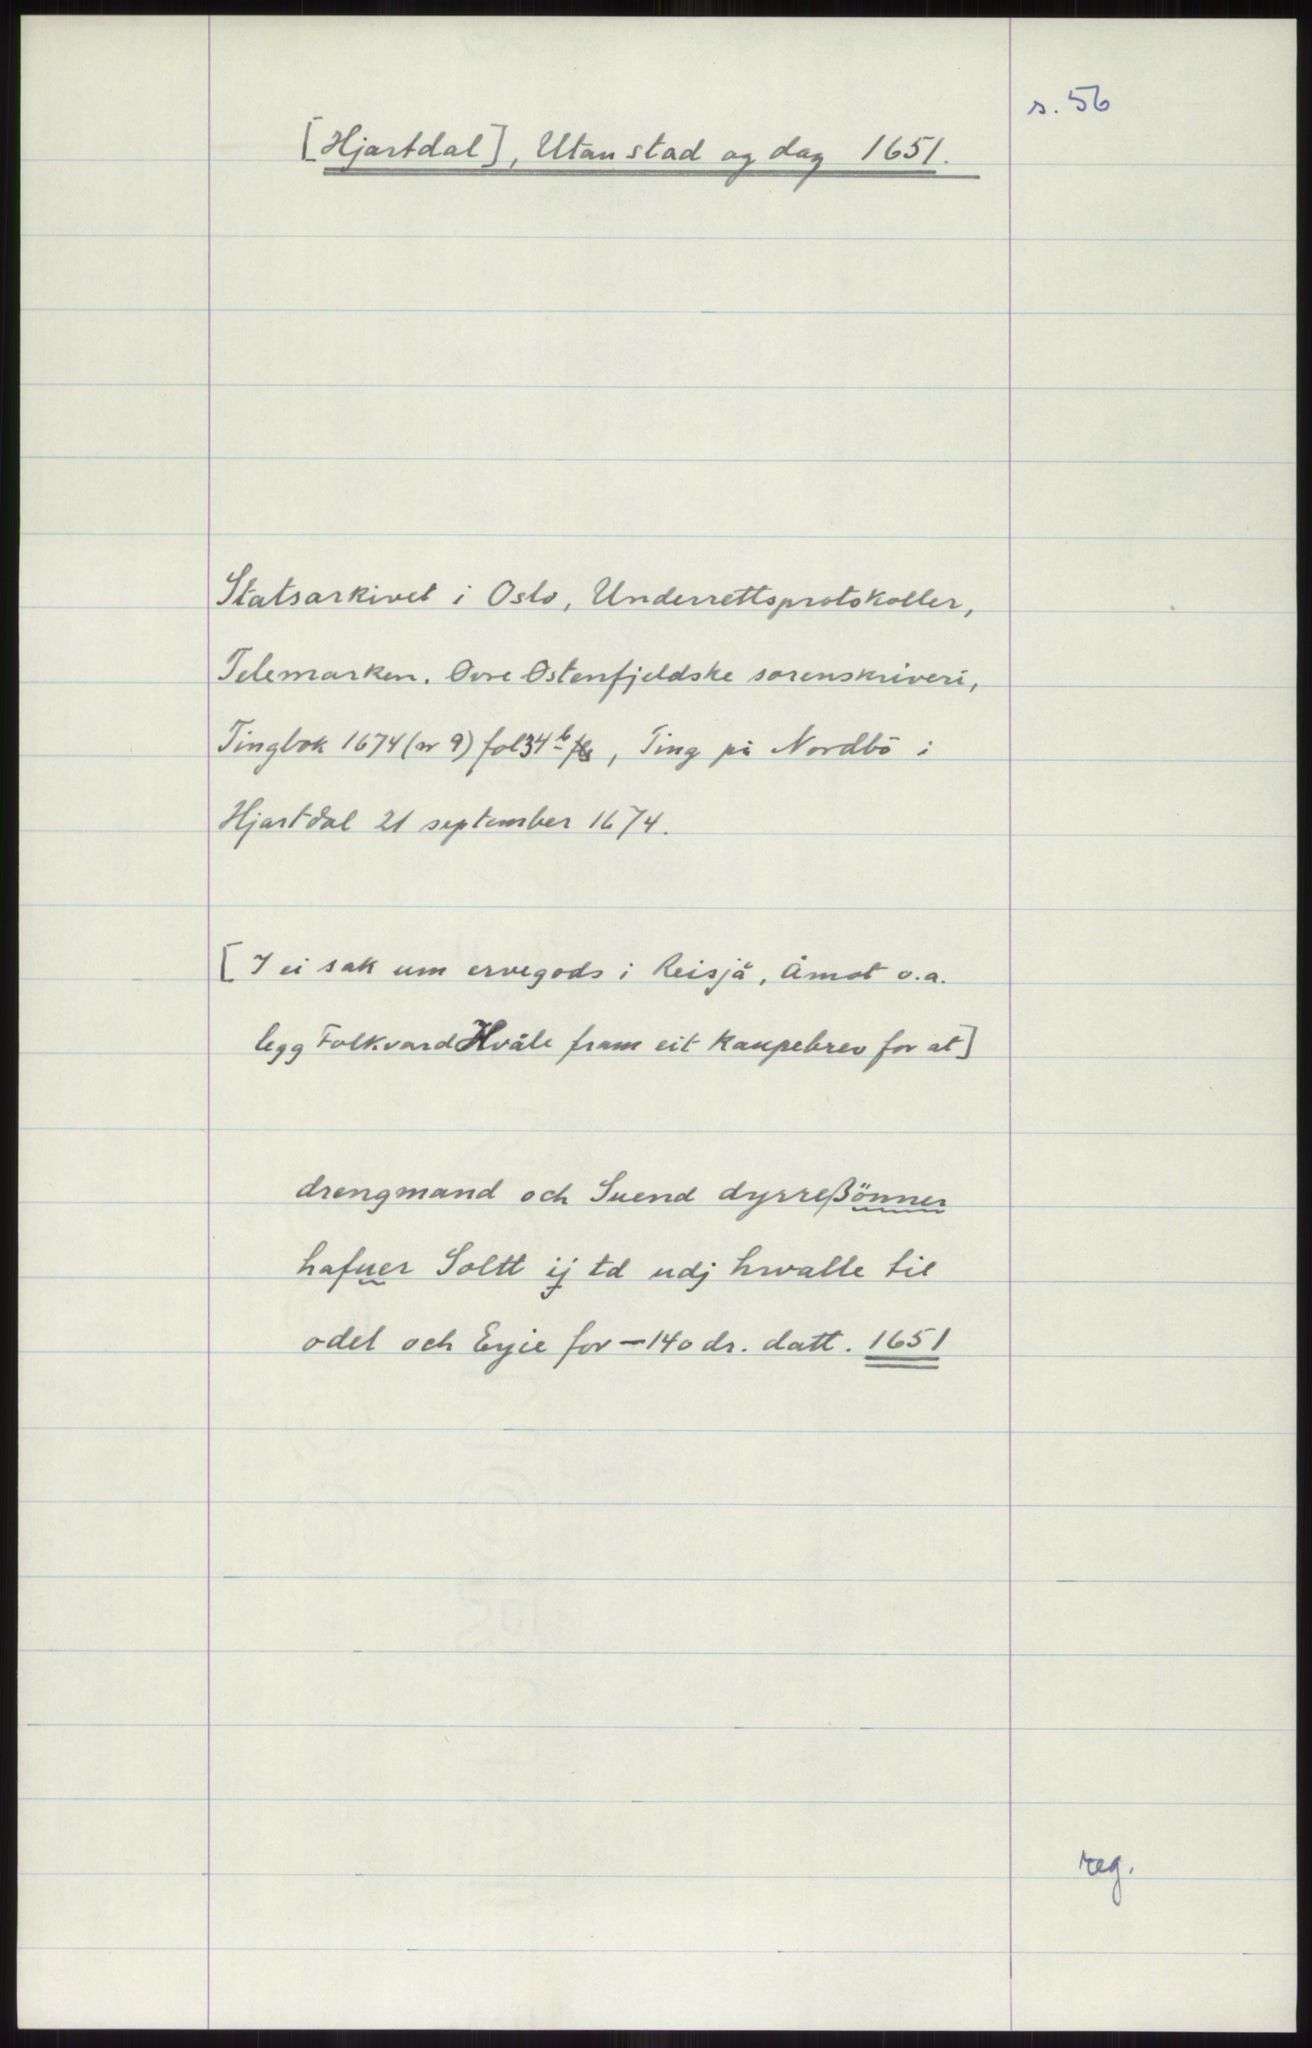 s. 56
[Hjartdal], Utan stad og dag 1651.
Statsarkivet i Oslo, Underrettsprotokoller,
Telemarken. Øvre Østenfjeldske sorenskriveri,
Tingbok 1674 (nr 9) fol 34 b, Ting på Nordbö i
Hjartdal 21 september 1674.
[I ei sak um ervegods i Reisjå, Åmot o.a.
legg Folkvard Hvåle fram eit kaupebrev for at]
drengmand och Suend dyrreßönner
hafuer Soltt ij td udj hwalle til
odel och Eyie for – 140 dr. datt. 1651
reg.